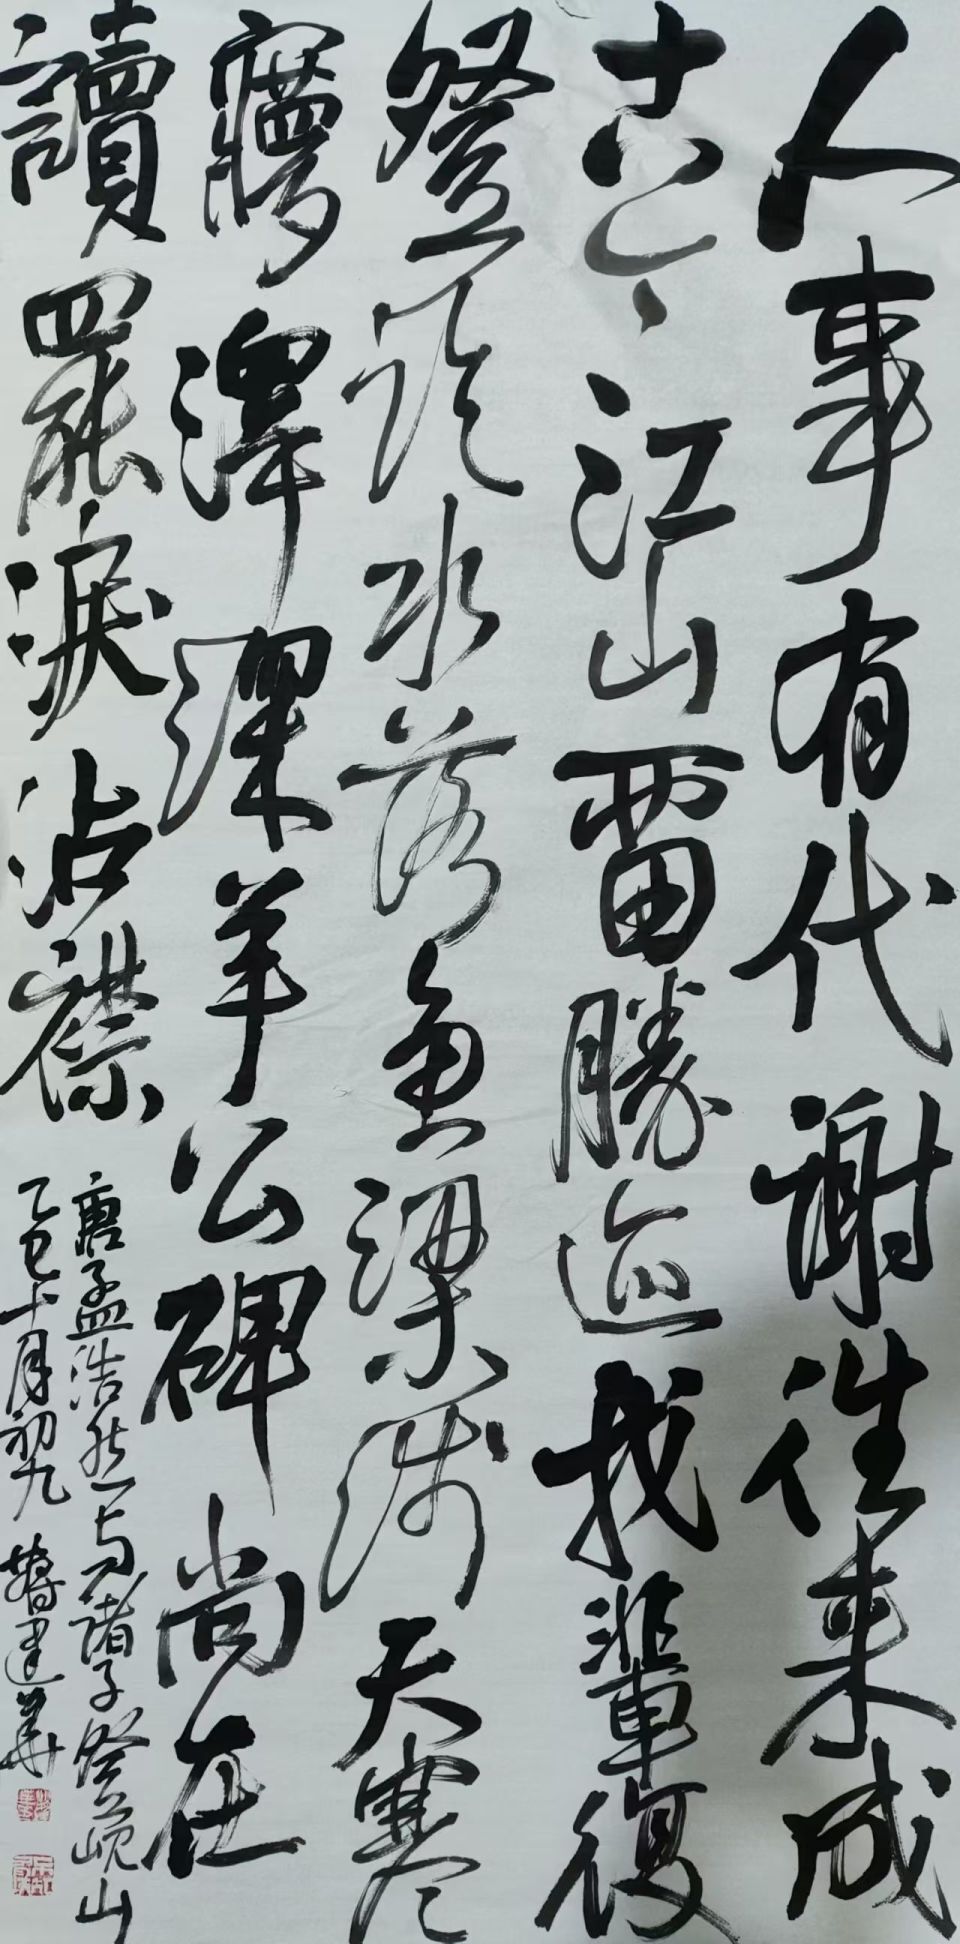 人事有代謝往来成
古今江山留勝迹我輩復
登臨水落魚梁浅天寒
夢澤深羊公碑尚在
讀罷淚沾襟
唐孟浩然与諸子登峴山
乙巳十月初九 建華